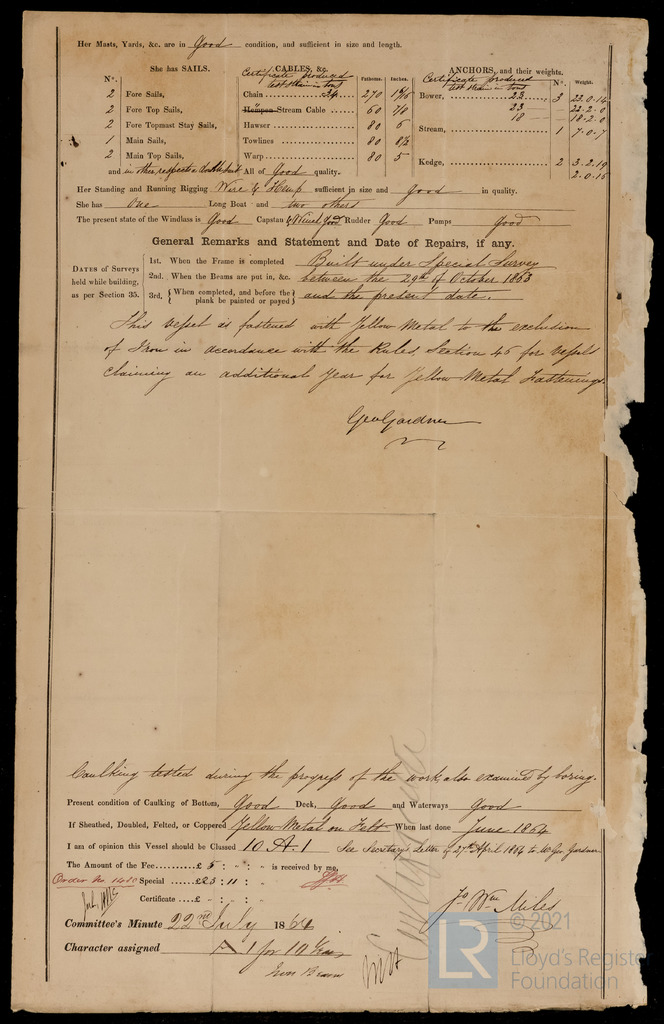 Her Masts, Yards, &c. are in Good condition, and sufficient in size and length.
She has SAILS.
N°.
2 Fore Sails,
2 Fore Top Sails,
2 Fore Topmast Stay Sails,
1 Main Sails,
2 Main Top Sails,
and in other respects
CABLES, &c.
Certificate produced
test strain in tons
Fathoms. Inches.
Chain 34 270
Hempen Stream Cable 60 7/8
Hawser 80 6
Towlines 80
Warp 80 5
All of Good quality.
ANCHORS, and their weights.
Certificate produced
test strain in tons
N°. Weight.
Bower, 23 3 22.0.14
23 22.2.0
18 18.2.0
Stream, 1 7.0.7
Kedge, 2 3.2.19
2.0.15
Her Standing and Running Rigging Wire & Hemp sufficient in size and good in quality.
She has One Long Boat and two others
The present state of the Windlass is Good Capstan & Winch good Rudder Good Pumps good
General Remarks and Statement and Date of Repairs, if any.
DATES of Surveys held while building, as per Section 35.
1st. When the Frame is completed Built under Special Survey
2nd. When the Beams are put in, &c. between the 29th of October 1863
3rd. When completed, and before the plank be painted or payed and the present date.
This vessel is fastened with Yellow Metal to the exclusion
of Iron in accordance with the Rules, Section 45 for vessels
claiming an additional Year for Yellow Metal Fastenings.
Geo Gardner
Caulking tested during the progress of the work, also examined by boring.
Present condition of Caulking of Bottom, Good Deck, Good and Waterways Good
If Sheathed, Doubled, Felted, or Coppered Yellow Metal on Felt When last done June 1864
I am of opinion this Vessel should be Classed 10 A.1 See Secretary's Letter of 27th April 1864 to Geo. Gardner
The Amount of the Fee £ 5 : " : " is received by me,
Order No 1480 Special £23 : 11 : "
Certificate £ : :
Jo Wm Miles
Committee's Minute 22nd July 1864
Character assigned A 1 for 10 Years
© 2021
LR
Lloyd's Register
Foundation